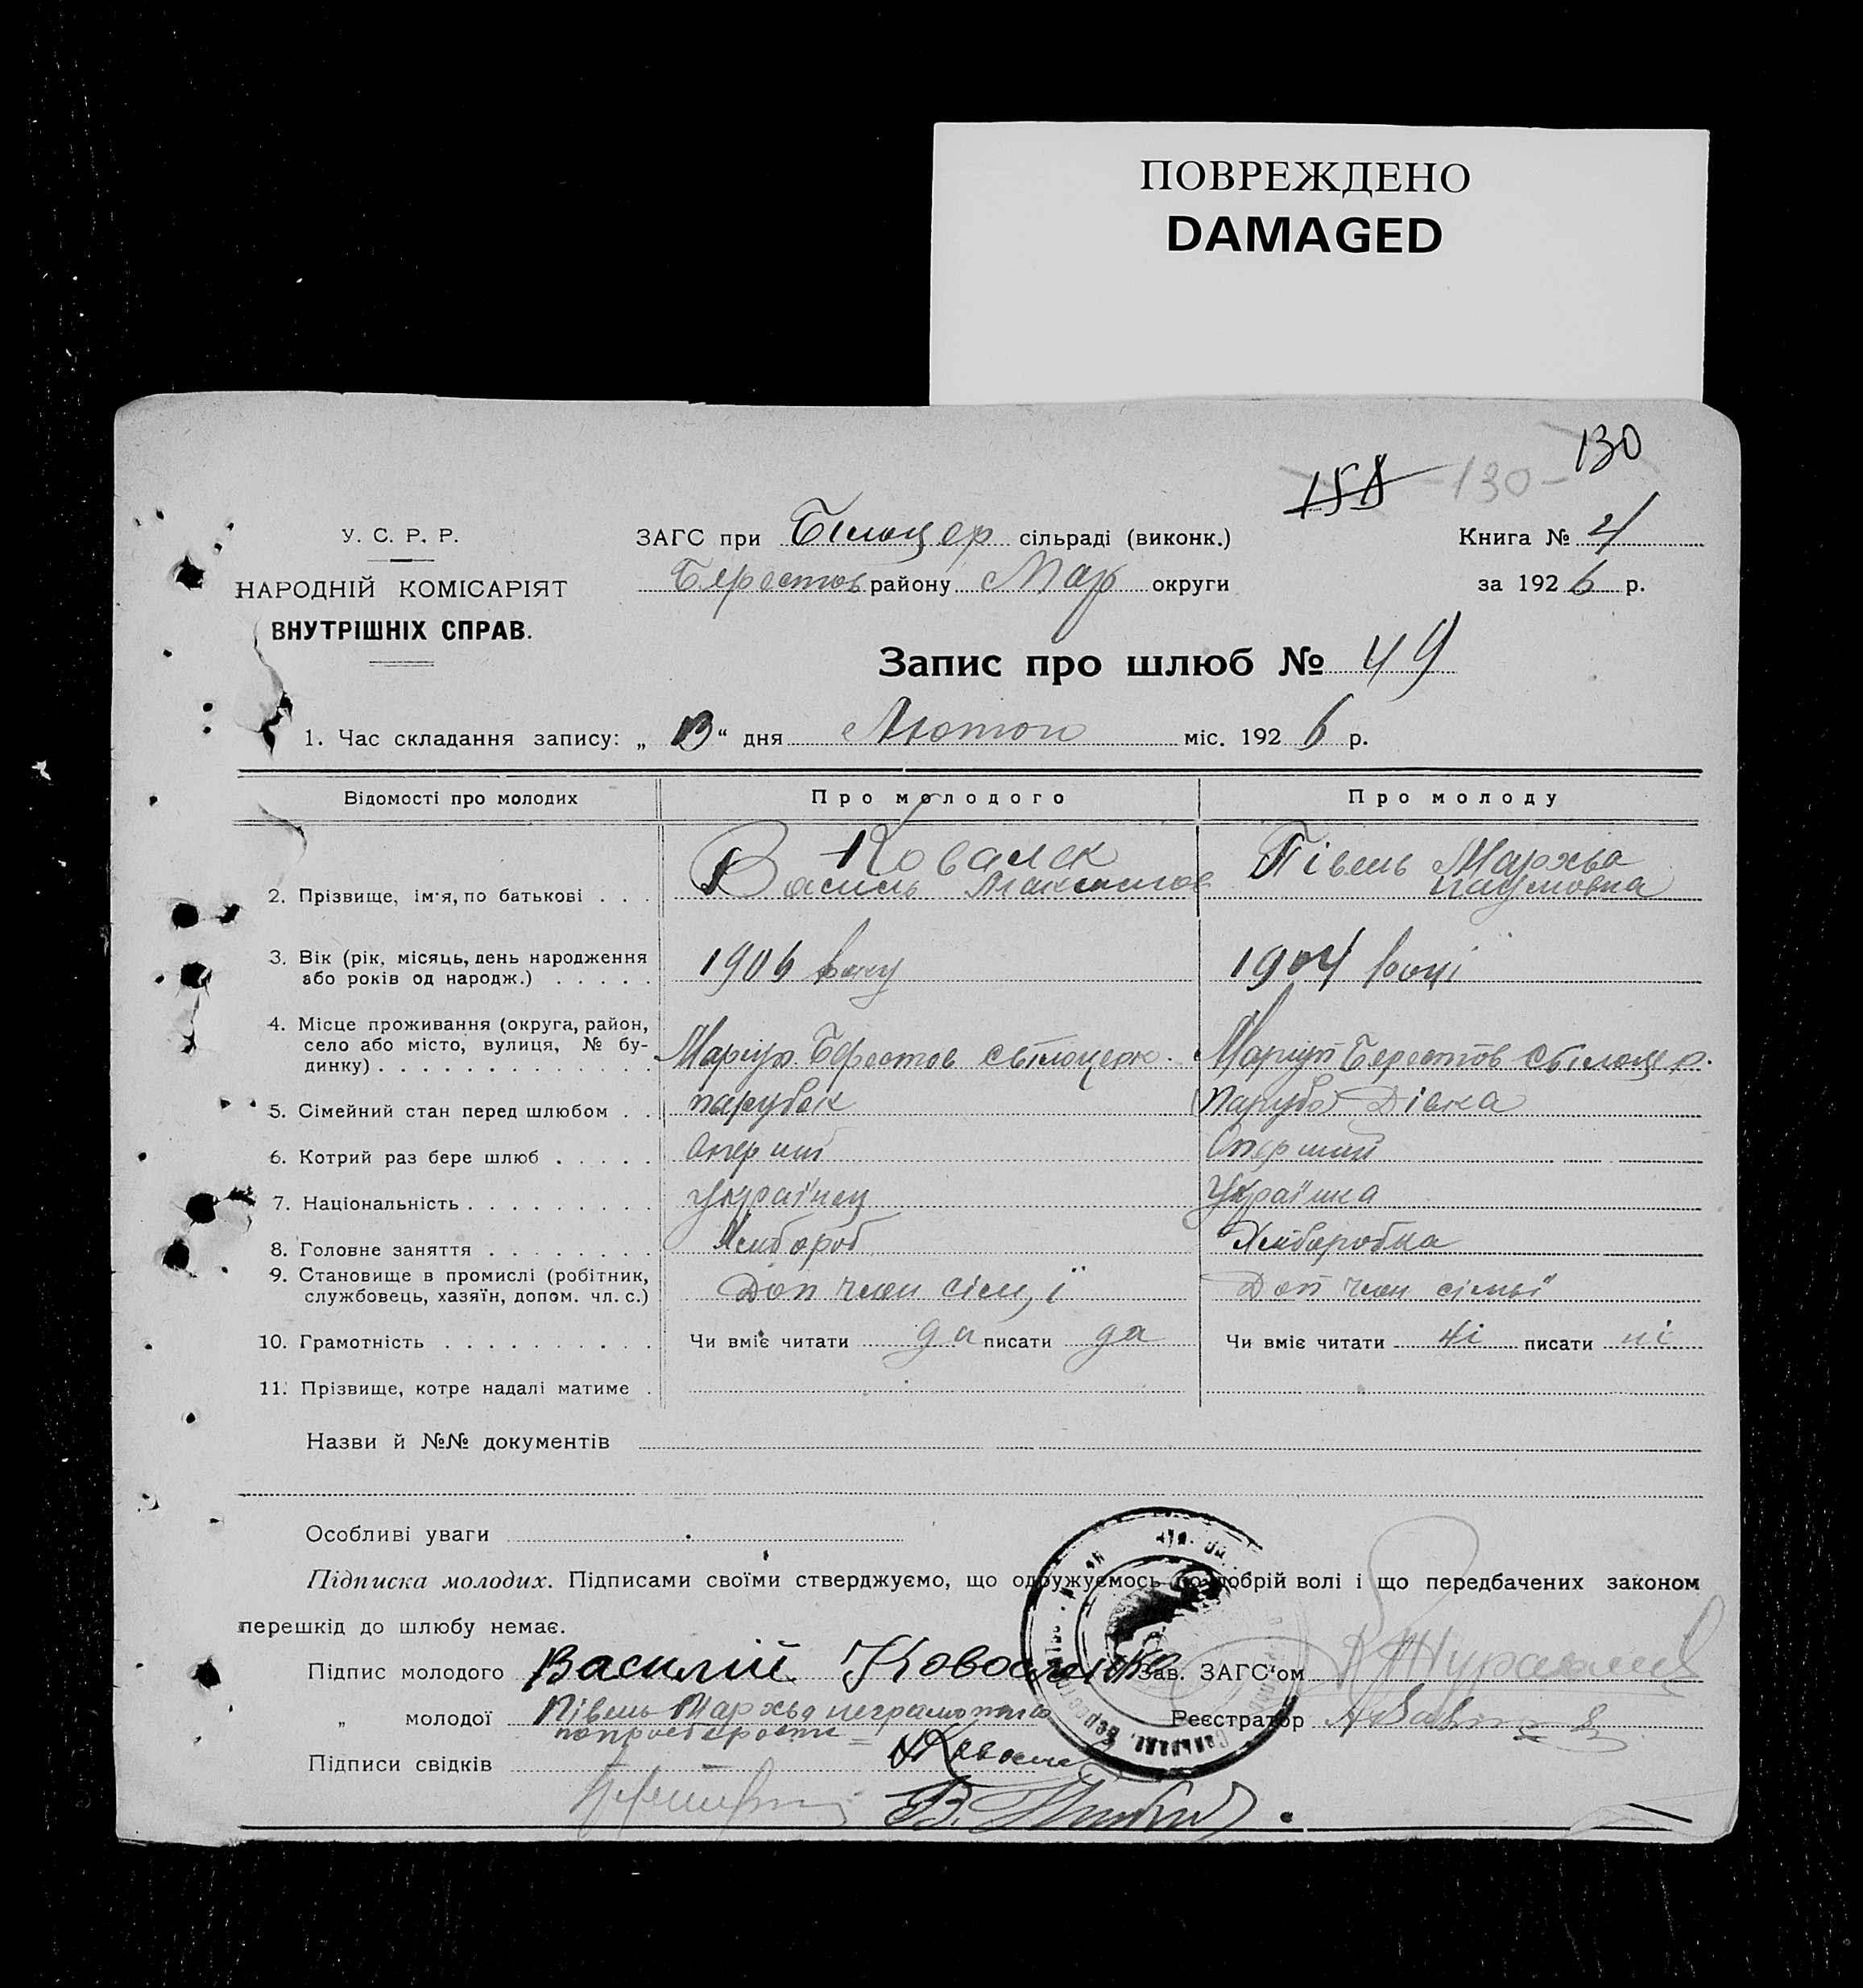 ПОВРЕЖДЕНО
DAMAGED
130
158 -130-
У. С. Р. Р.
НАРОДНІЙ КОМІСАРІЯТ
ВНУТРІШНІХ СПРАВ.
ЗАГС при Білоцер сільраді (виконк.)
Берестов району Мар округи
Книга № 4
за 1926 р.
Запис про шлюб № 49
1. Час складання запису: „ 13 “ дня Лютого міс. 1926 р.
Відомості про молодих Про молодого Про молоду
2. Прізвище, ім'я, по батькові . . . Ковалек Василь Півень Мархва Наумовна
3. Вік (рік, місяць, день народження
або років од народж.) . . . . . 1906 року 1904 році
4. Місце проживання (округа, район,
село або місто, вулиця, № бу-
динку) . . . . . . . . . . . . . Маріуп. Берестов с білоцерк. Маріуп Берестов с білоцер.
5. Сімейний стан перед шлюбом . . парубок Парубо Дівка
6. Котрий раз бере шлюб . . . . . Оперший Оперший
7. Національність . . . . . . . . . Українец Українка
8. Головне заняття . . . . . . . . Хлібороб Хліборобка
9. Становище в промислі (робітник,
службовець, хазяїн, допом. чл. с.) Доп член сімї Доп член сімьї
10. Грамотність . . . . . . . . . . Чи вміє читати да писати да Чи вміє читати ні писати ні
11. Прізвище, котре надалі матиме .
Назви й №№ документів
Особливі уваги
Підписка молодих. Підписами своїми стверджуємо, що одружуємось по добрій волі і що передбачених законом
перешкід до шлюбу немає.
Підпис молодого Василій Коваленко Зав. ЗАГС'ом
„ молодої Півень Мархва неграмотна Реєстратор
Підписи свідків